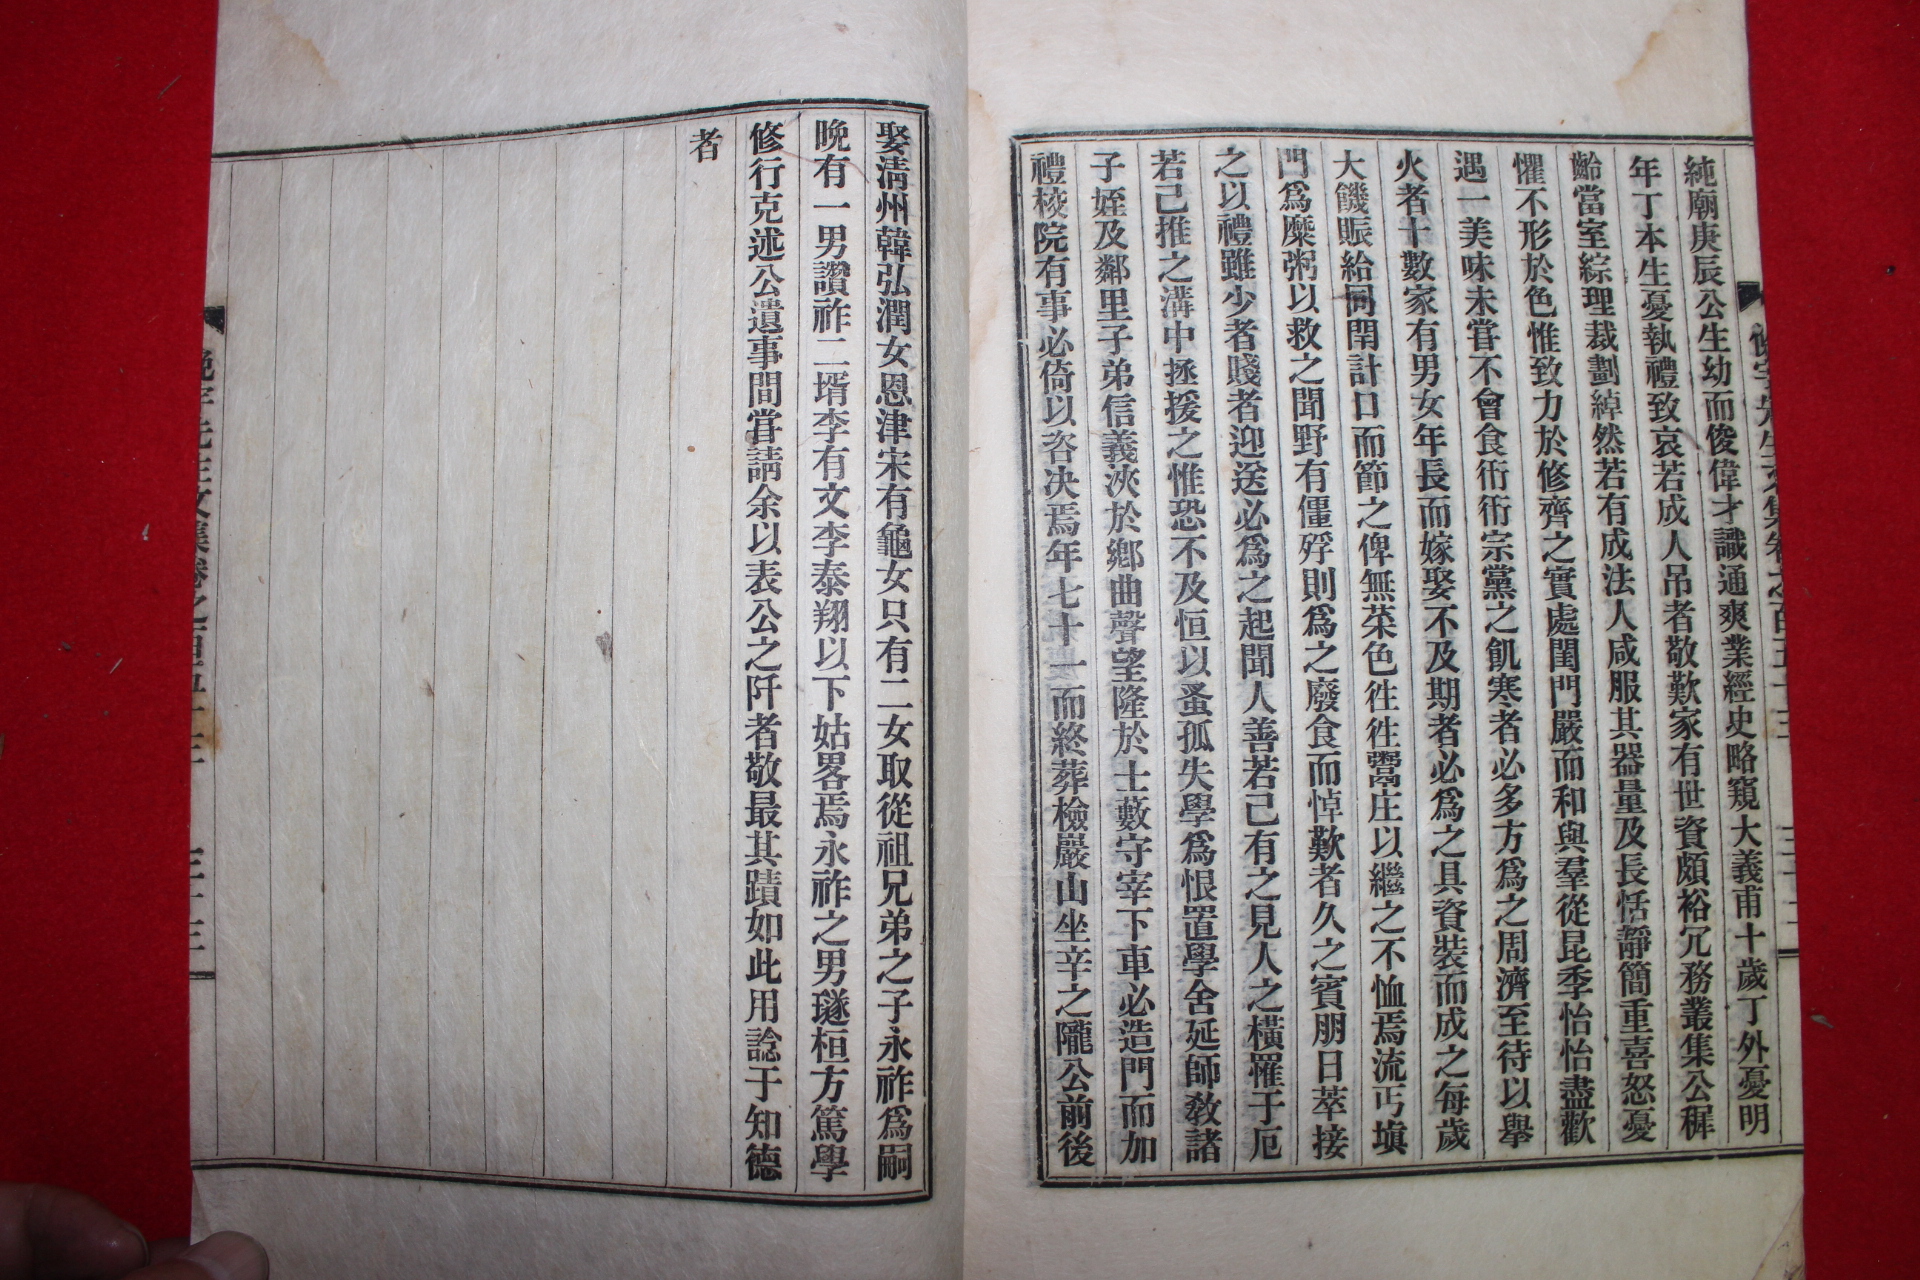 純廟庚辰公生幼而俊偉才識通爽業經史略窺大義甫十歲丁外憂明
年丁本生憂執禮致哀若成人吊者敬歎家有世資頗裕冗務叢集公穉
齡當室綜理裁劃綽然若有成法人咸服其器量及長恬靜簡重喜怒憂
懼不形於色惟致力於修齊之實處閨門嚴而和與羣從昆季怡怡盡歡
遇一美味未甞不會食衎衎宗黨之飢寒者必多方爲之周濟至待以擧
火者十數家有男女年長而嫁娶不及期者必爲之具資裝而成之每歲
大饑賑給同閈計口而節之俾無菜色徃徃鬻庄以繼之不恤焉流丐塡
門爲糜粥以救之聞野有僵殍則爲之廢食而悼歎者久之賓朋日萃接
之以禮雖少者賤者迎送必爲之起聞人善若己有之見人之橫罹于厄
若己推之溝中拯援之惟恐不及恒以蚤孤失學爲恨置學舍延師敎諸
子姪及鄰里子弟信義浹於鄕曲聲望隆於士藪守宰下車必造門而加
禮校院有事必倚以咨决焉年七十一而終葬檢巖山坐辛之隴公前後
娶淸州韓弘潤女恩津宋有龜女只有二女取從祖兄弟之子永祚爲嗣
晩有一男讚祚二壻李有文李泰翔以下姑畧焉永祚之男璲桓方篤學
修行克述公遺事間甞請余以表公之阡者敬最其蹟如此用諗于知德
者